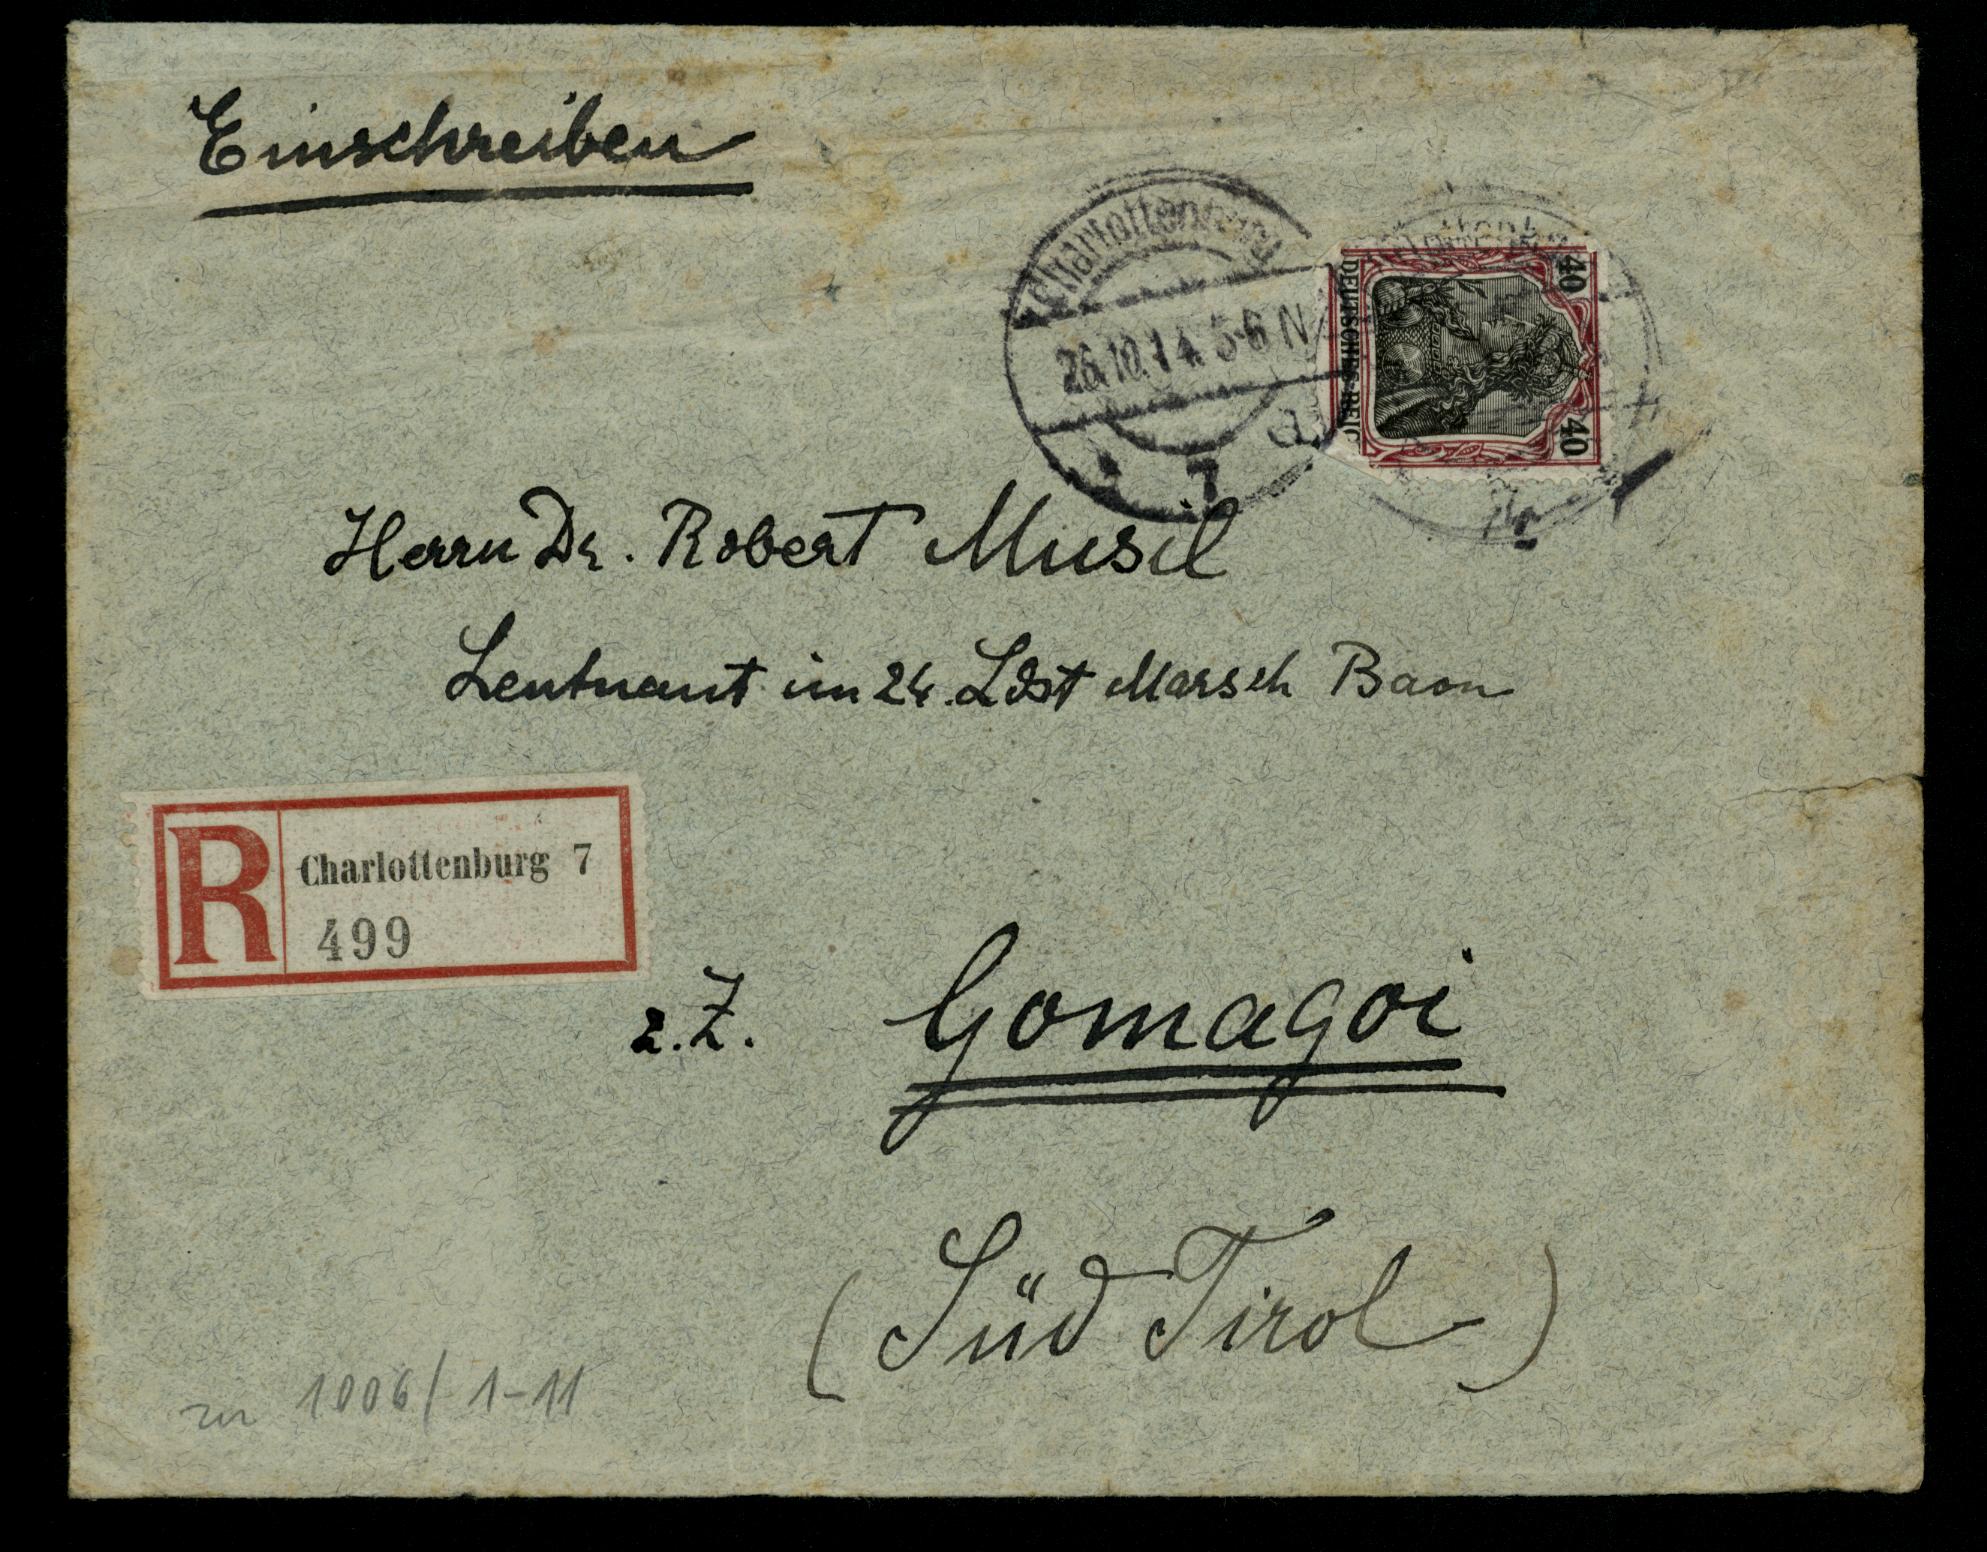 Einschreiben
Charlottenburg
26.10.14. 5-6 N
* 7 d.
DEUTSCHES REIC
40
40
Herrn Dr. Robert Musil
Leutnant im 24. Ldst Marsch Baon
R Charlottenburg 7
499
z.Z. Gomagoi
(Süd Tirol)
zu 1006/1-11